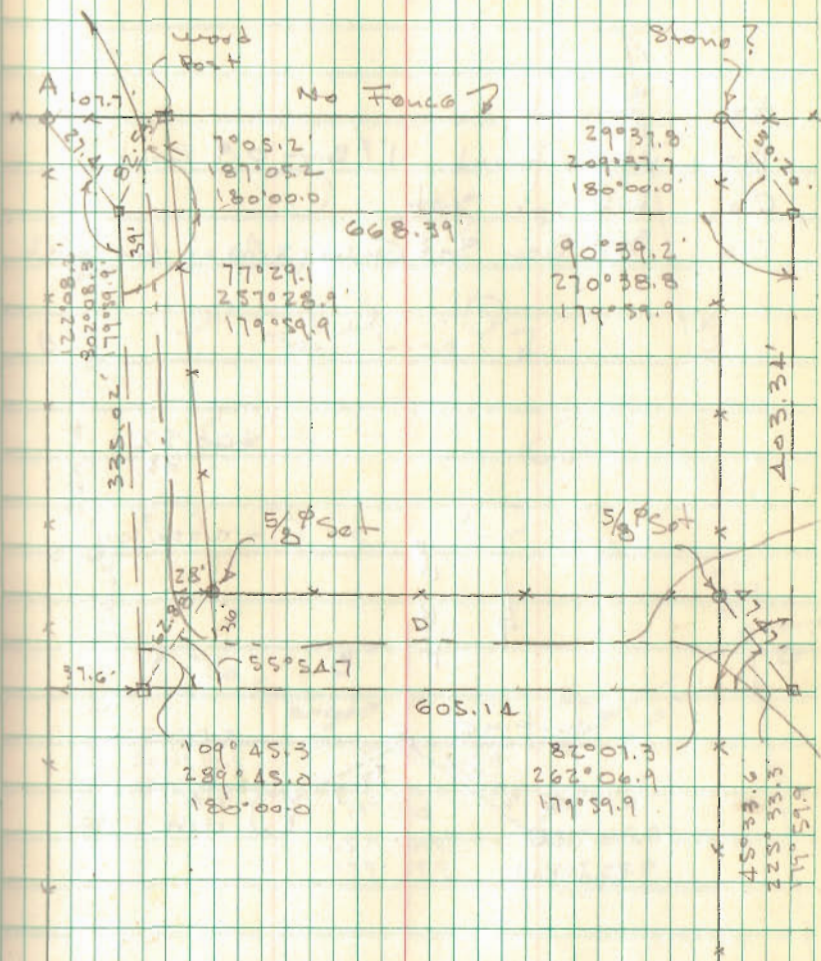 wood
Post
Stone?
A
107.7'
No Fence
27.4'
82.55'
7°05.2'
187°05.2
180°00.0
29°37.8'
209°37.7
180°00.0'
50.20'
668.39'
39'
122°08.2'
302°08.3
179°59.9'
77°29.1
257°28.9'
179°59.9
90°39.2'
270°38.8
179°59.9
335.02'
403.34'
5/8"φ Set
5/8"φ Set
28'
62.88'
36'
D
47.47'
55°54.7
37.6'
605.14
109°45.3
289°45.0
180°00.0
82°07.3
262°06.9
179°59.9
45°33.6
225°33.3
179°59.9